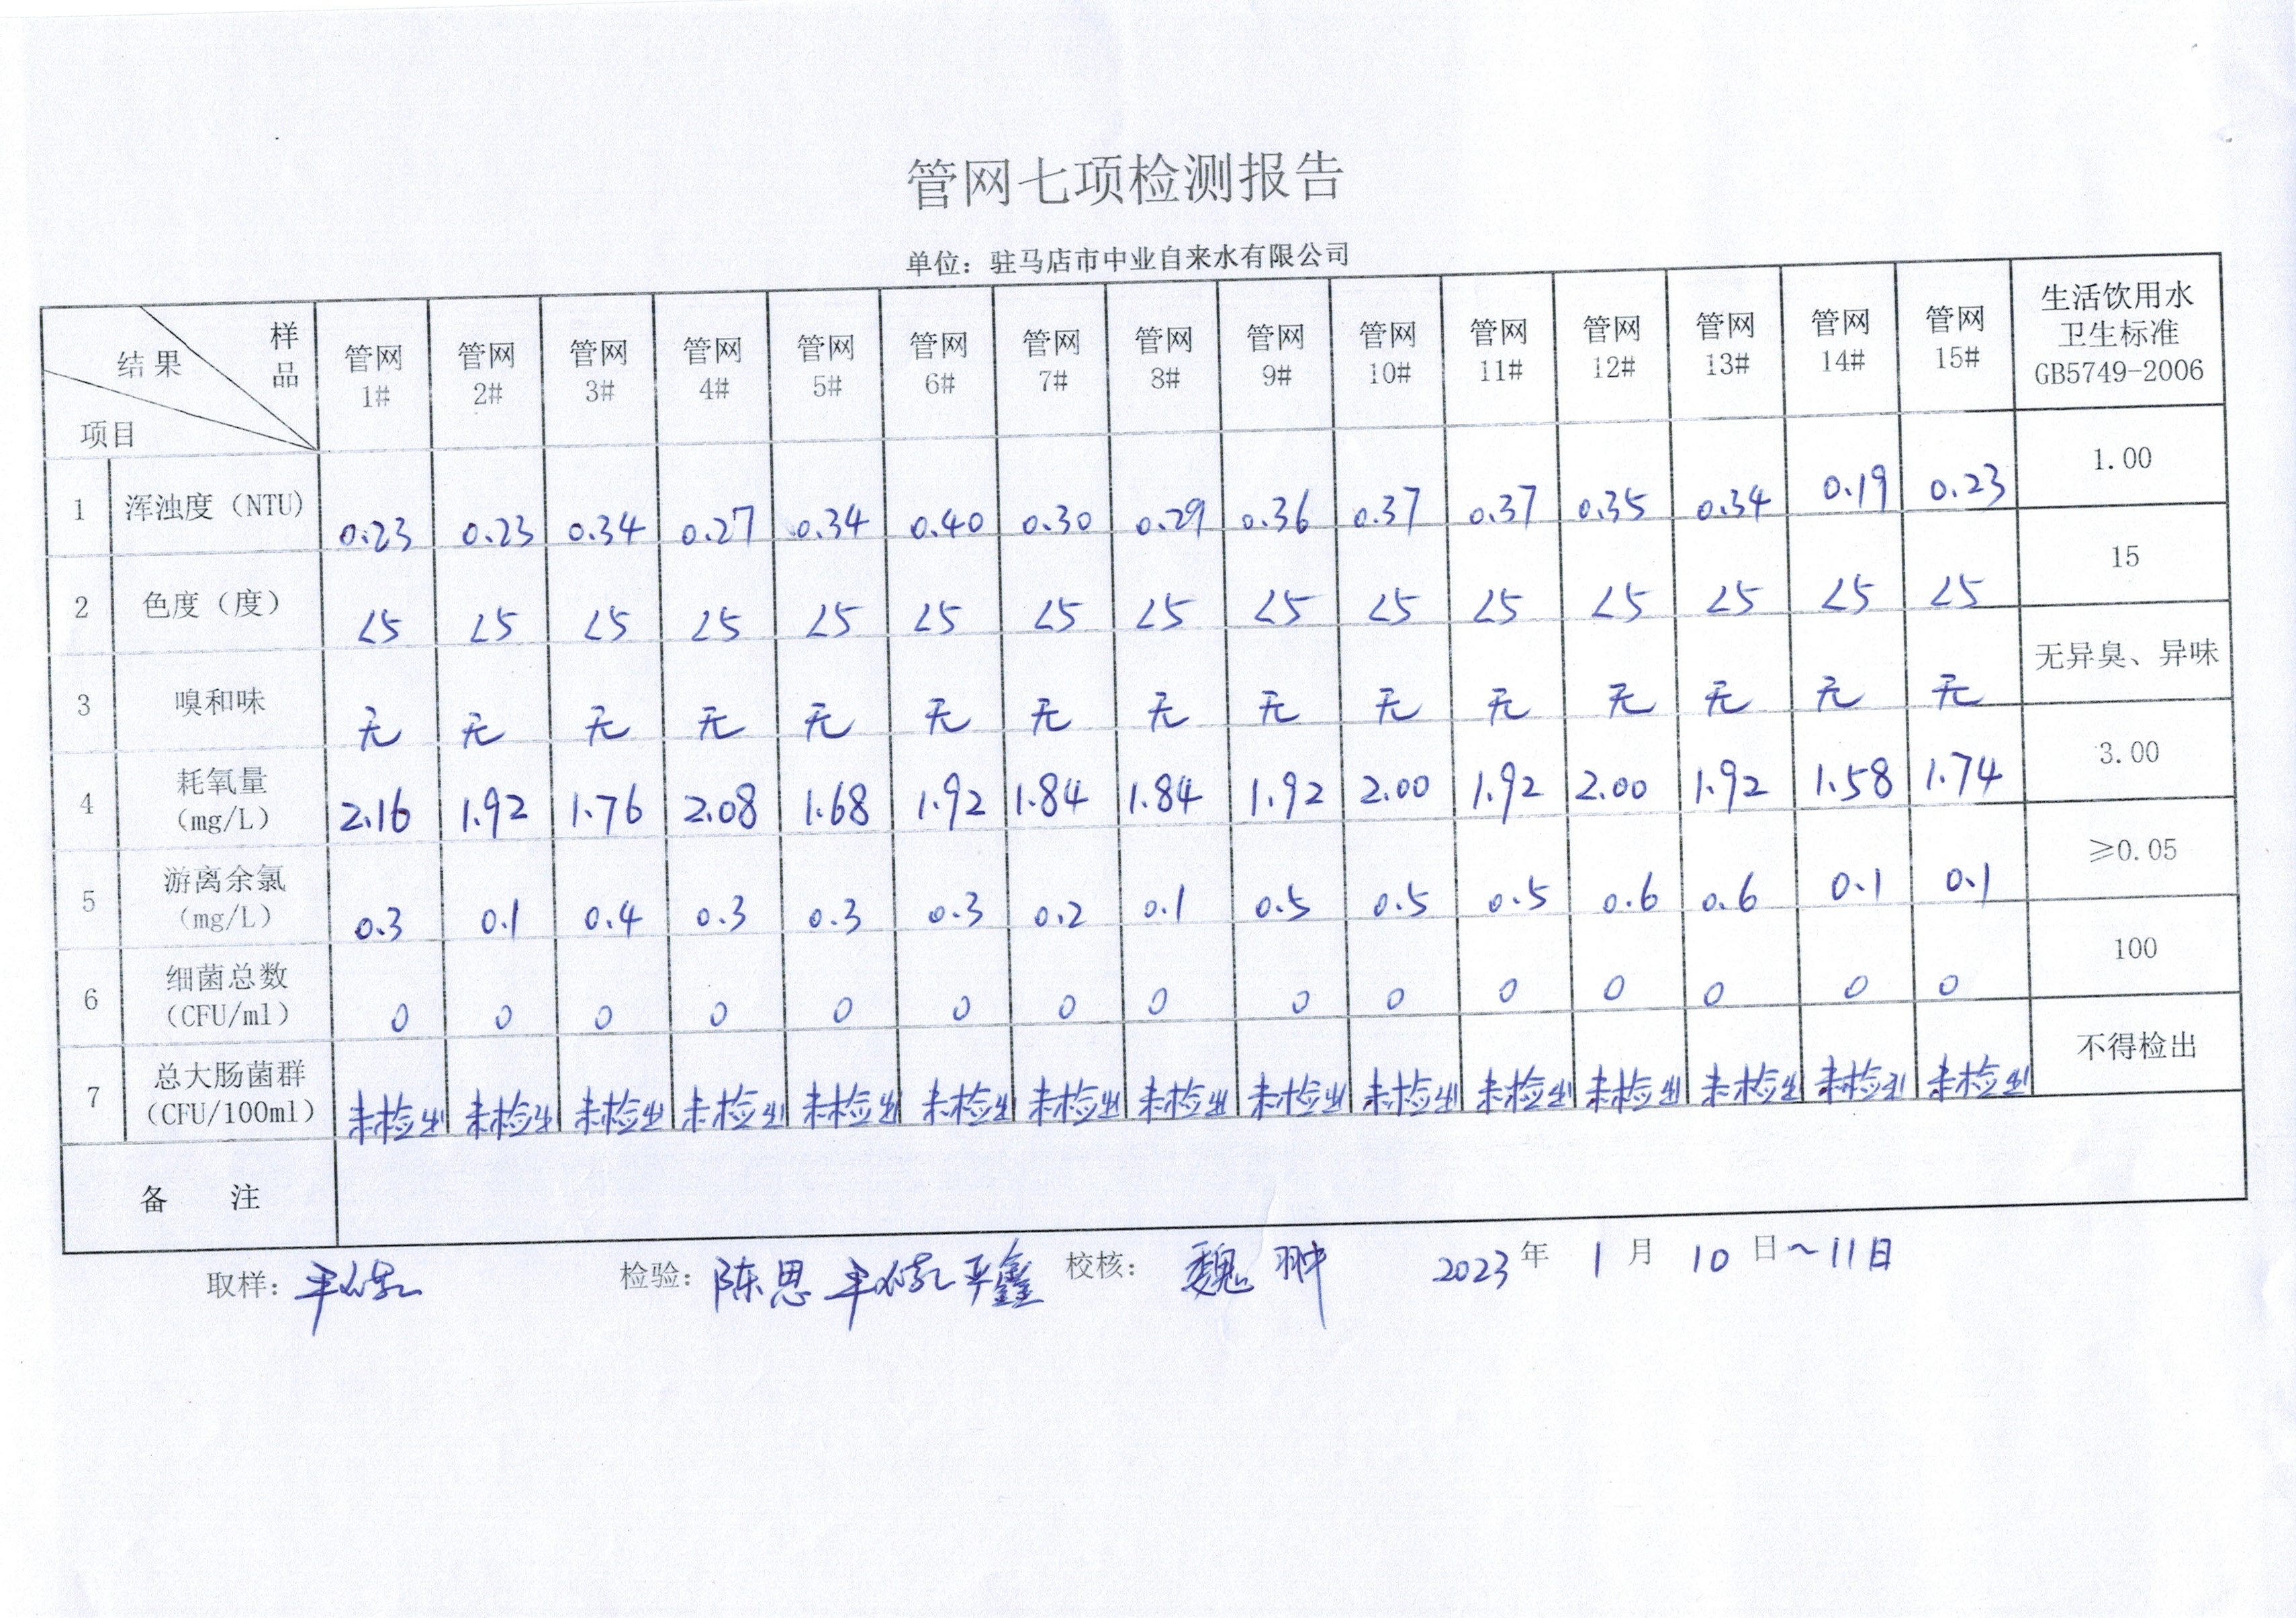 管网七项检测报告
单位：驻马店市中业自来水有限公司
项目 结果 样品 管网1# 管网2# 管网3# 管网4# 管网5# 管网6# 管网7# 管网8# 管网9# 管网10# 管网11# 管网12# 管网13# 管网14# 管网15# 生活饮用水卫生标准GB5749-2006
1 浑浊度（NTU) 0.23 0.23 0.34 0.27 0.34 0.40 0.30 0.29 0.36 0.37 0.37 0.35 0.34 0.19 0.23 1.00
2 色度（度） <5 <5 <5 <5 <5 <5 <5 <5 <5 <5 <5 <5 <5 <5 <5 15
3 嗅和味 无 无 无 无 无 无 无 无 无 无 无 无 无 无 无 无异臭、异味
4 耗氧量（mg/L） 2.16 1.92 1.76 2.08 1.68 1.92 1.84 1.84 1.92 2.00 1.92 2.00 1.92 1.58 1.74 3.00
5 游离余氯（mg/L） 0.3 0.1 0.4 0.3 0.3 0.3 0.2 0.1 0.5 0.5 0.5 0.6 0.6 0.1 0.1 ≥0.05
6 细菌总数（CFU/ml） 0 0 0 0 0 0 0 0 0 0 0 0 0 0 0 100
7 总大肠菌群（CFU/100ml） 未检出 未检出 未检出 未检出 未检出 未检出 未检出 未检出 未检出 未检出 未检出 未检出 未检出 未检出 未检出 不得检出
备 注
取样： 检验：陈思 校核：魏翀 2023年1月10日~11日